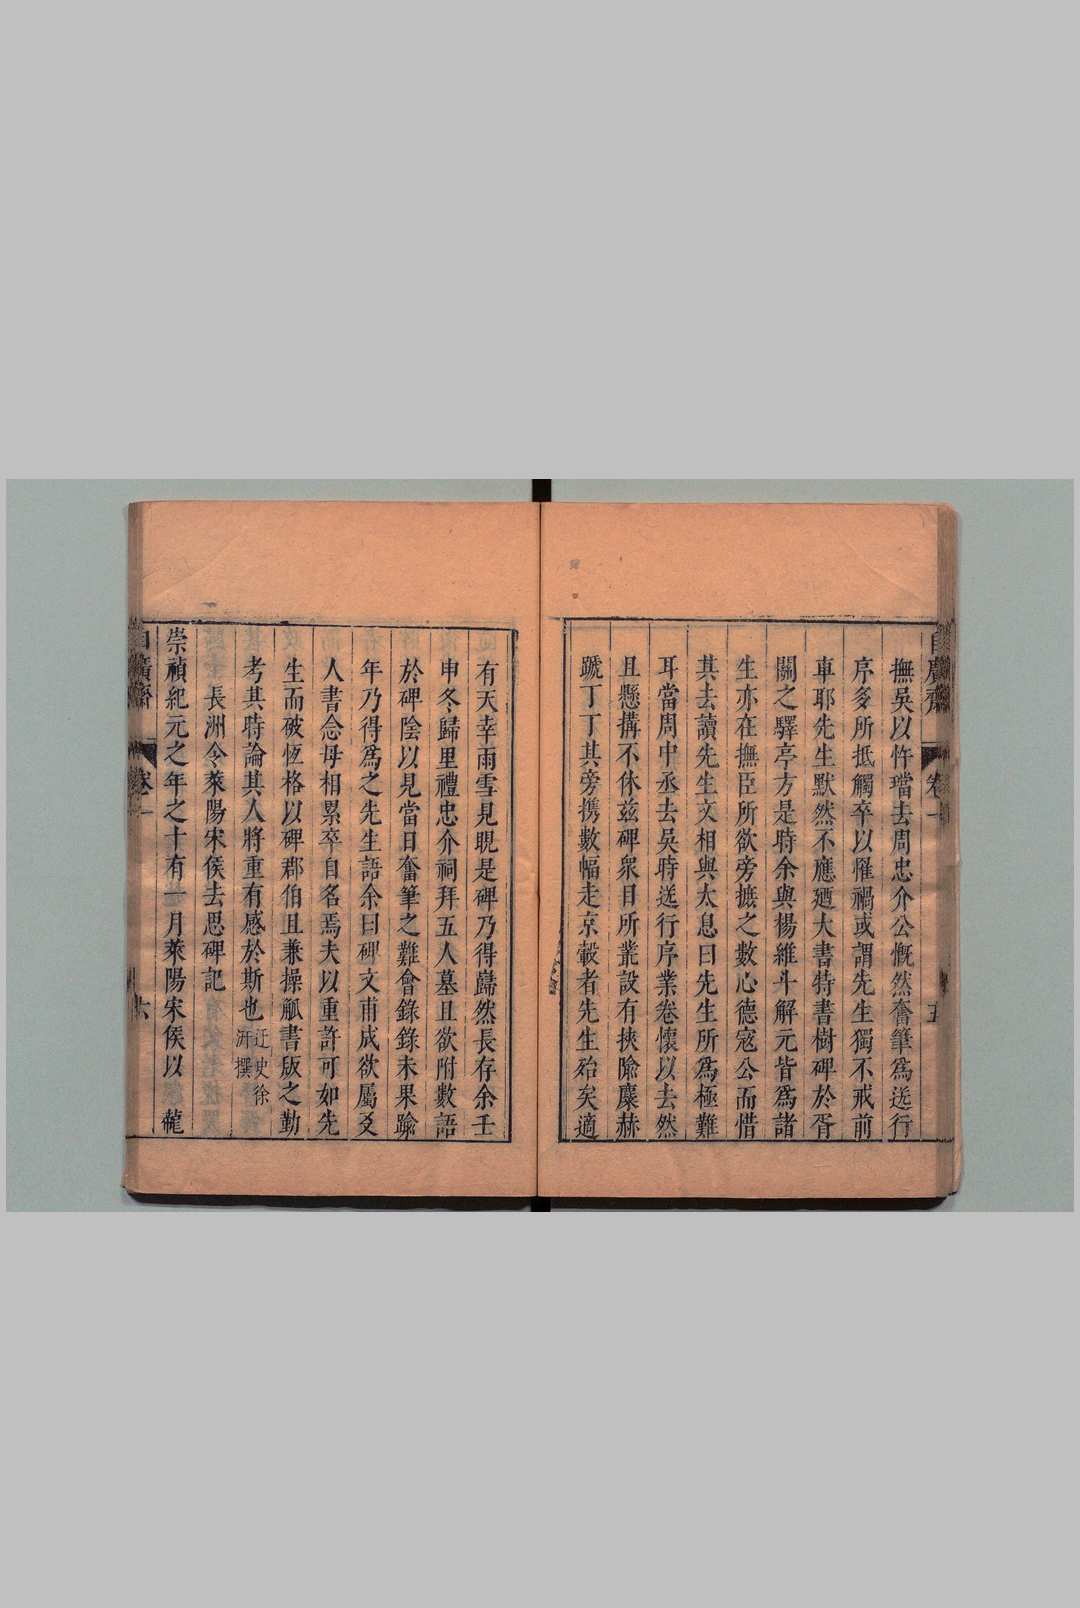 撫吳以忤璫去周忠介公慨然奮筆爲送行
序多所抵觸卒以罹禍或謂先生獨不戒前
車耶先生默然不應廼大書特書樹碑於胥
關之驛亭方是時余與楊維斗解元皆爲諸
生亦在撫臣所欲旁摭之數心德寇公而惜
其去讀先生文相與太息曰先生所爲極難
耳當周中丞去吳時送行序業卷懷以去然
且懸搆不休茲碑衆目所叢設有挾隃麋赫
蹏丁丁其旁携數幅走京轂者先生殆矣適
自廣齋 卷一 五
有天幸雨雪見晛是碑乃得巋然長存余壬
申冬歸里禮忠介祠拜五人墓且欲附數語
於碑陰以見當日奮筆之難會錄錄未果踰
年乃得爲之先生語余曰碑文甫成欲屬文
人書念毋相累卒自名焉夫以重許可如先
生而破恆格以碑郡伯且兼操觚書版之勤
考其時論其人將重有感於斯也 迂史徐
汧撰
長洲令萊陽宋侯去思碑記
崇禎紀元之年之十有一月萊陽宋侯以
自廣齋 卷一 六